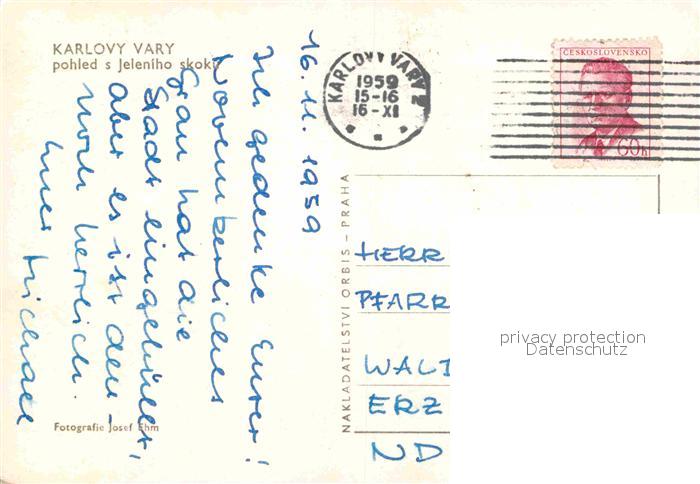 KARLOVY VARY
pohled s Jeleního skoku
16. 11. 1959
Ich gedenke Eurer!
Novemberliches
Grau hat die
Stadt eingehüllt,
aber es ist den-
noch herrlich.
Euer Michael
Fotografie Josef Ehm
NAKLADATELSTVÍ ORBIS – PRAHA
KARLOVY VARY 2
1959
15-16
16-XI
ČESKOSLOVENSKO
60h
HERR
PFARR
WALT
ERZ
ND
privacy protection
Datenschutz